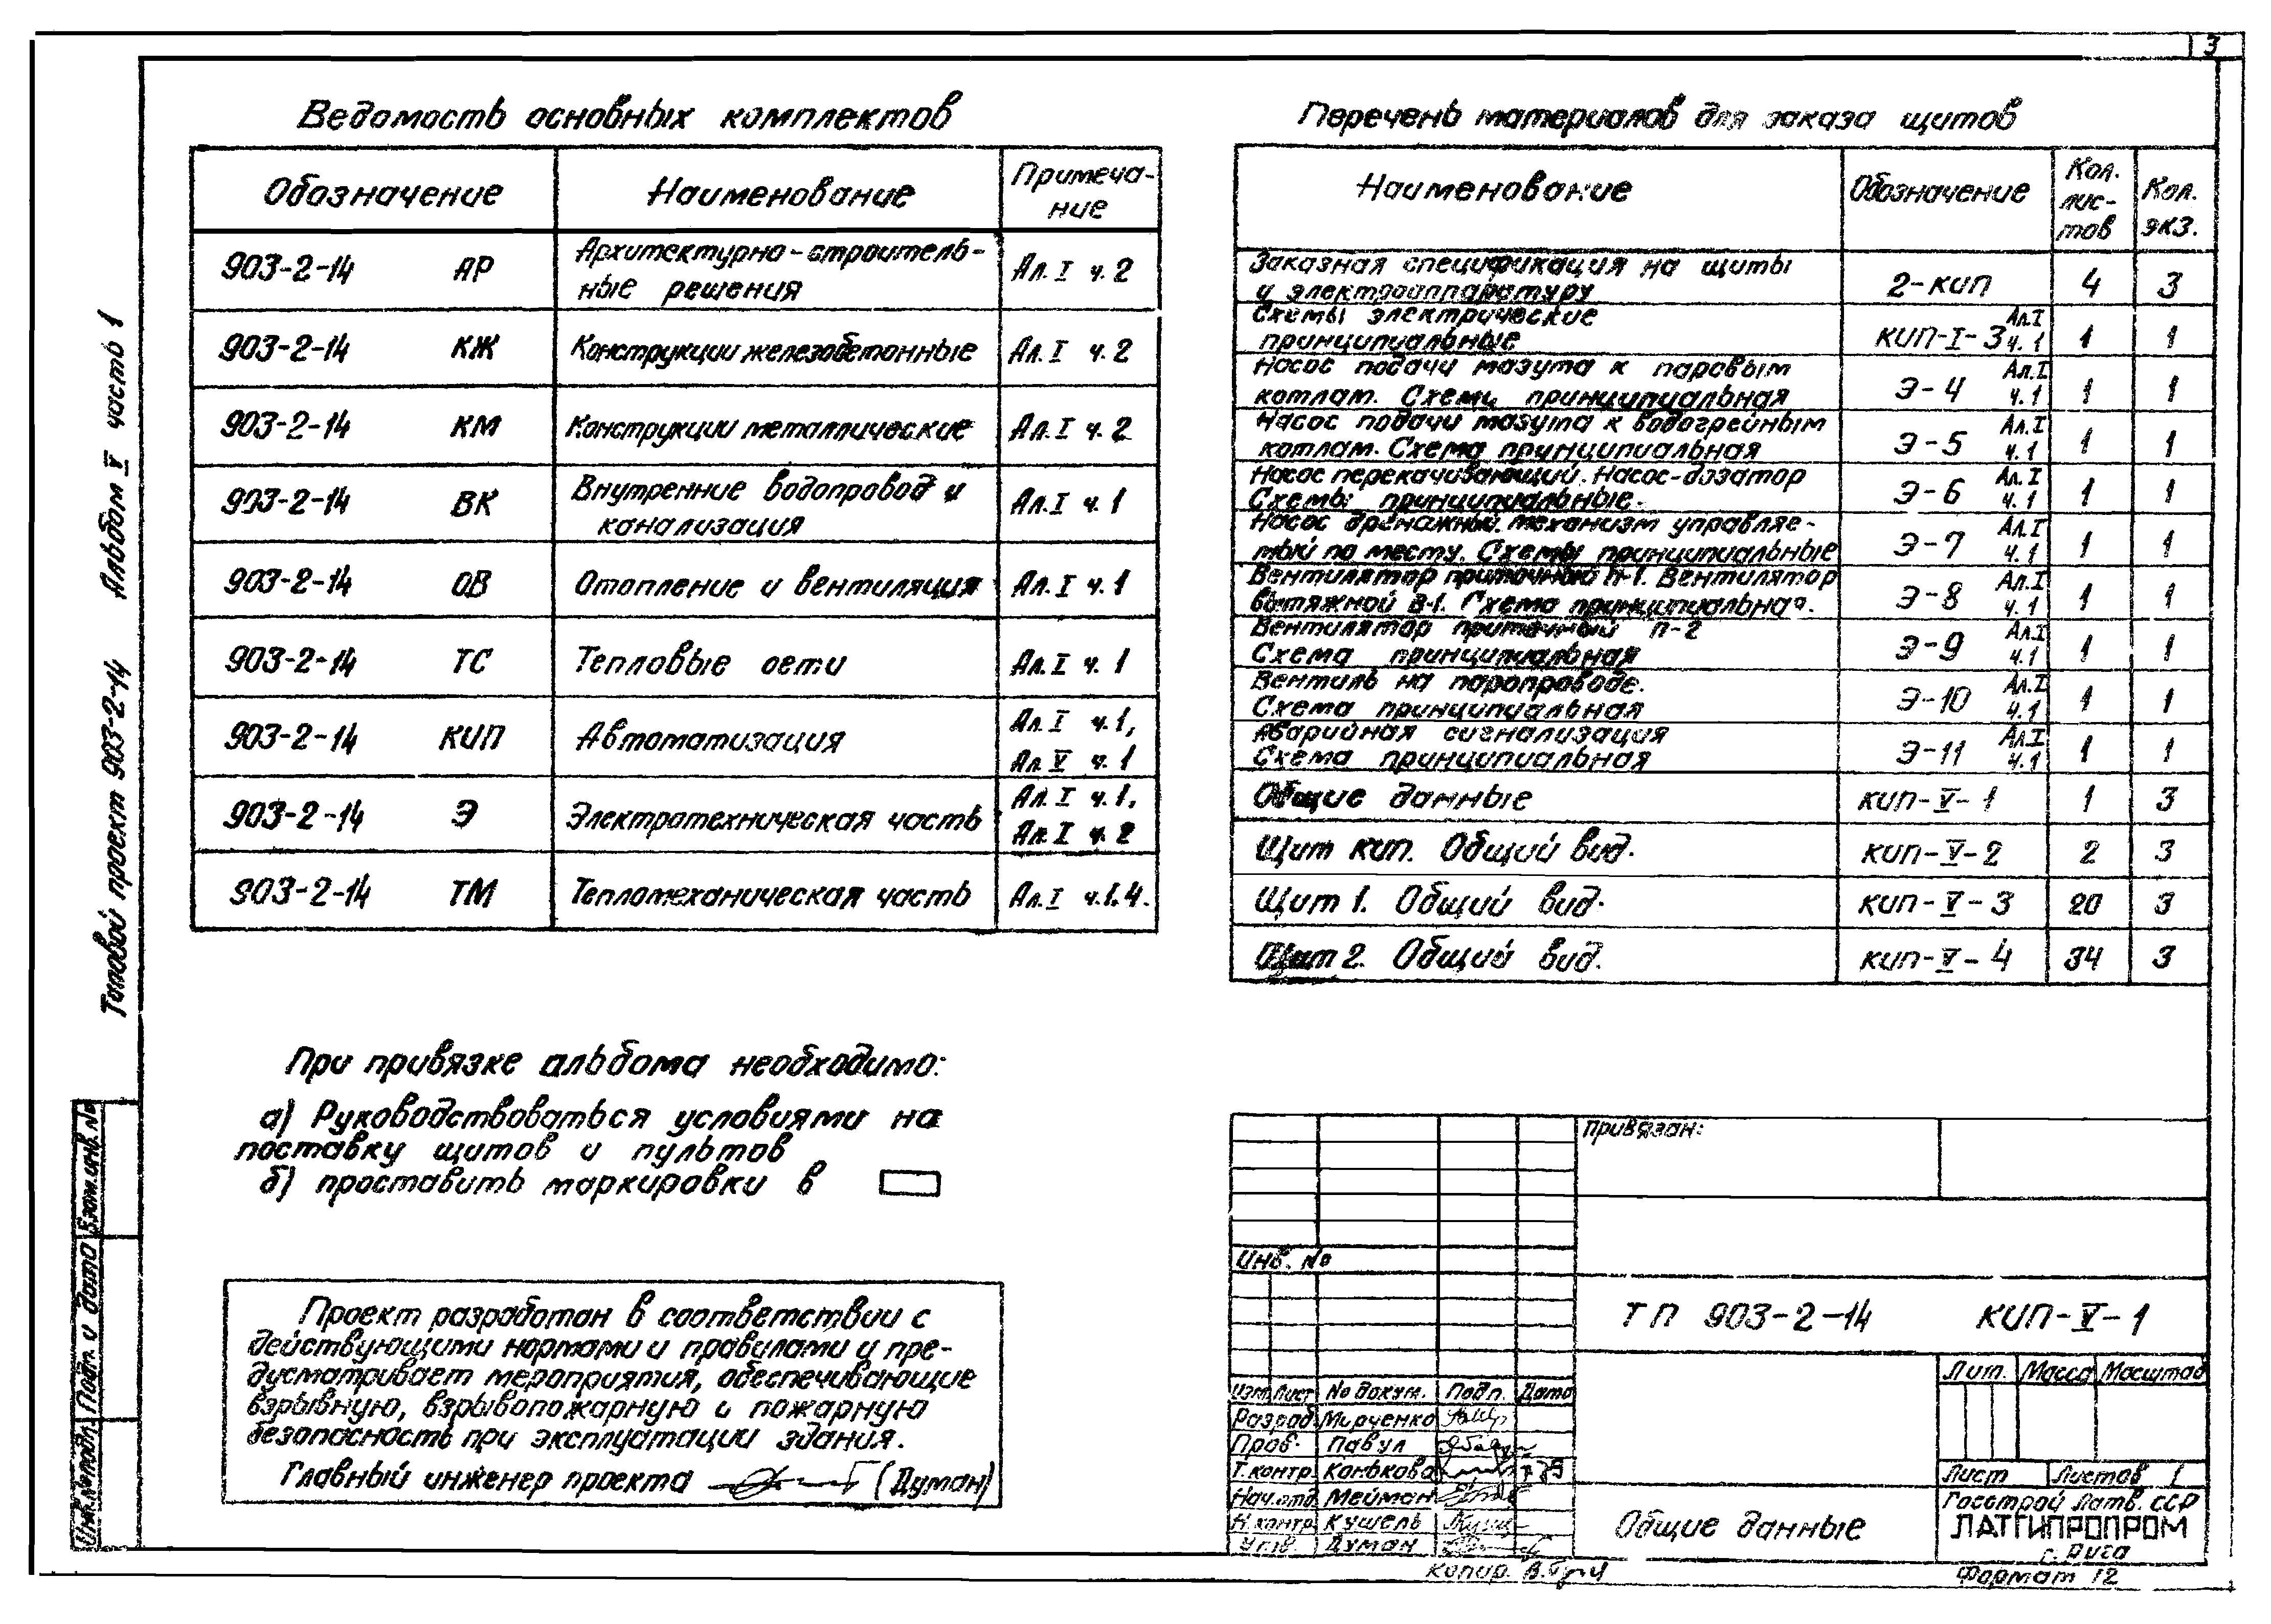 3
Типовой проект 903-2-14 Альбом V часть 1
Ведомость основных комплектов
Обозначение Наименование Примеча-
ние
903-2-14 АР Архитектурно-строитель-
ные решения Ал. I ч. 2
903-2-14 КЖ Конструкции железобетонные Ал. I ч. 2
903-2-14 КМ Конструкции металлические Ал. I ч. 2
903-2-14 ВК Внутренние водопровод и
канализация Ал. I ч. 1
903-2-14 ОВ Отопление и вентиляция Ал. I ч. 1
903-2-14 ТС Тепловые сети Ал. I ч. 1
903-2-14 КИП Автоматизация Ал. I ч. 1,
Ал. V ч. 1
903-2-14 Э Электротехническая часть Ал. I ч. 1,
Ал. I ч. 2
903-2-14 ТМ Тепломеханическая часть Ал. I ч. 1.4.
При привязке альбома необходимо:
а) Руководствоваться условиями на
поставку щитов и пультов
б) проставить маркировки в
Проект разработан в соответствии с
действующими нормами и правилами и пре-
дусматривает мероприятия, обеспечивающие
взрывную, взрывопожарную и пожарную
безопасность при эксплуатации здания.
Главный инженер проекта (Думан)
Перечень материалов для заказа щитов
Наименование Обозначение Кол.
лис-
тов Кол.
экз.
Заказная спецификация на щиты
и электроаппаратуру 2-КИП 4 3
Схемы электрические
принципиальные КИП-I-3 Ал. I ч. 1 1 1
Насос подачи мазута к паровым
котлам. Схема принципиальная Э-4 Ал. I ч. 1 1 1
Насос подачи мазута к водогрейным
котлам. Схема принципиальная Э-5 Ал. I ч. 1 1 1
Насос перекачивающий. Насос-дозатор
Схемы принципиальные. Э-6 Ал. I ч. 1 1 1
Насос дренажный, механизм управляе-
мый по месту. Схемы принципиальные Э-7 Ал. I ч. 1 1 1
Вентилятор приточный П-1. Вентилятор
вытяжной В-1. Схема принципиальная. Э-8 Ал. I ч. 1 1 1
Вентилятор приточный П-2
Схема принципиальная Э-9 Ал. I ч. 1 1 1
Вентиль на паропроводе.
Схема принципиальная Э-10 Ал. I ч. 1 1 1
Аварийная сигнализация
Схема принципиальная Э-11 Ал. I ч. 1 1 1
Общие данные КИП-V-1 1 3
Щит КИП. Общий вид. КИП-V-2 2 3
Щит 1. Общий вид. КИП-V-3 20 3
Щит 2. Общий вид. КИП-V-4 34 3
Привязан:
Инв. №
ТП 903-2-14 КИП-V-1
Лит. Масса Масштаб
Изм. Лист № докум. Подп. Дата
Разраб. Мирченко
Пров. Павул
Т.контр. Конькова
Нач.отд. Мейман
Н.контр. Кушель
Утв. Думан
Лист Листов 1
Общие данные
Госстрой Латв. ССР
ЛАТГИПРОПРОМ
г. Рига
Копир.
Формат 12
Взам. инв. №
Подп. и дата
Инв. № подл.